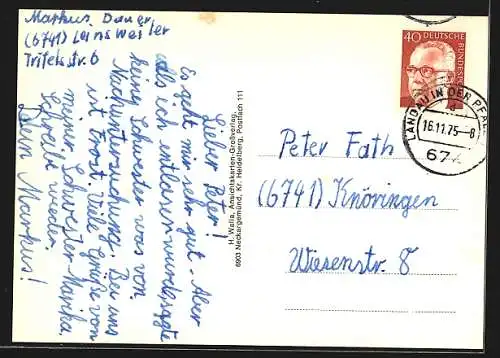 Markus Dauer
(6741) Leinsweiler
Trifelsstr. 6
Lieber Peter!
Es geht mir sehr gut. Aber
als ich entlassen wurde, sagte
keine Schwester was von
Nachuntersuchung. Bei uns
ist Frost. Viele Grüße von
meiner Schwester Marika
Schreibe wieder.
Dein Markus!
H. Walla, Ansichtskarten-Großverlag,
6903 Neckargemünd, Kr. Heidelberg, Postfach 111
40 DEUTSCHE
BUNDESPOST
LANDAU IN DER PFALZ
16.11.75-8
674
Peter Fath
(6741) Knöringen
Wiesenstr. 8